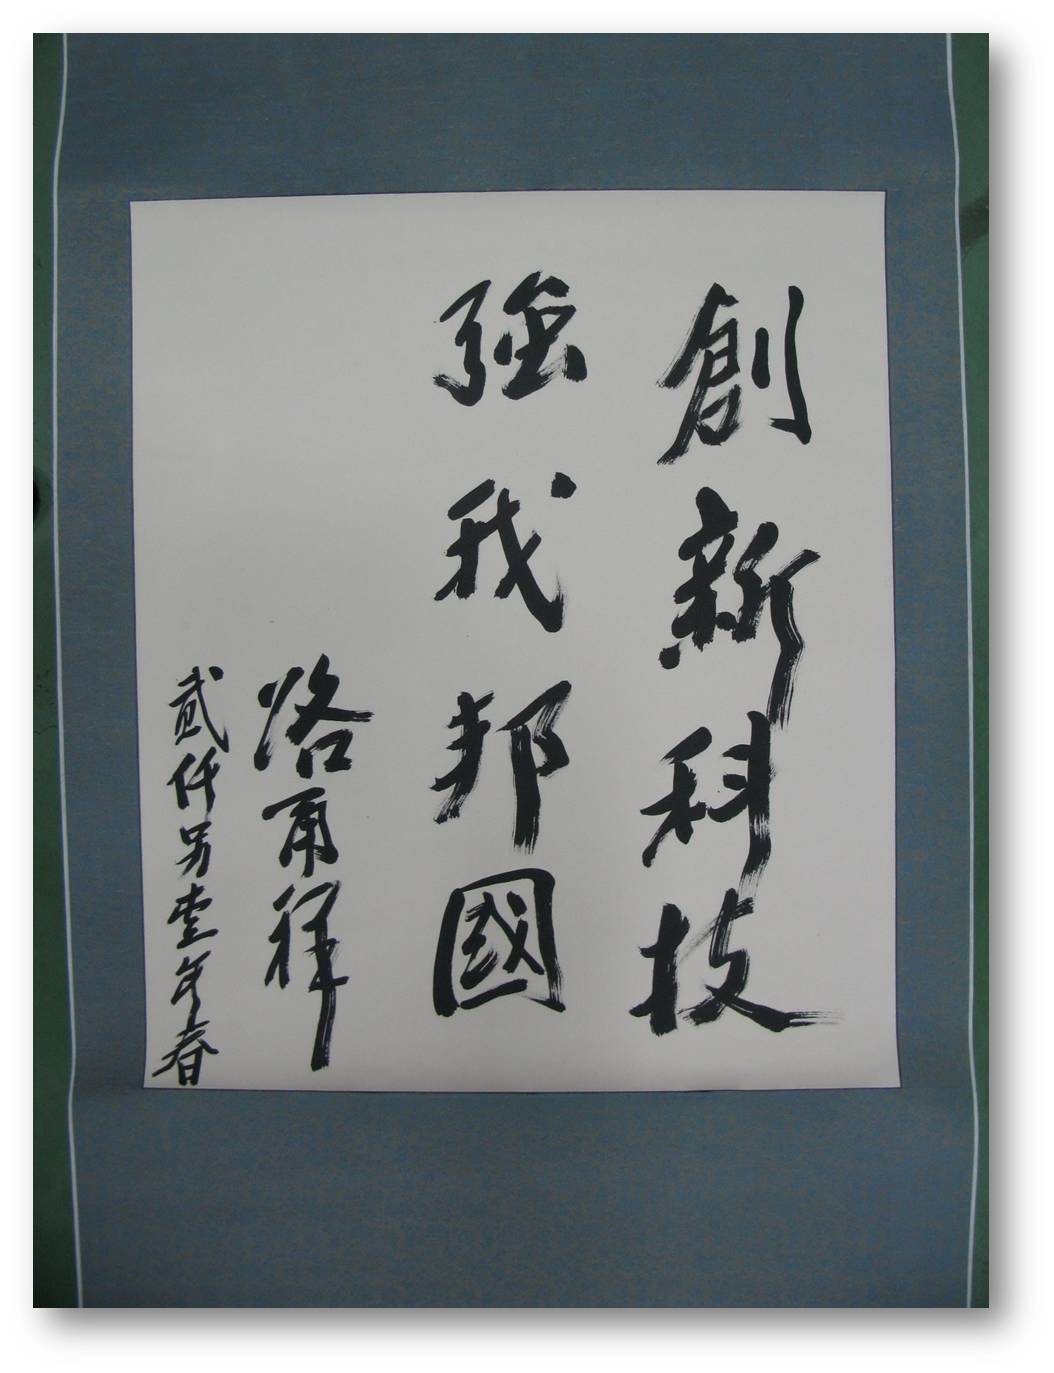 創新科技
強我邦國
路甬祥
貳仟另壹年春